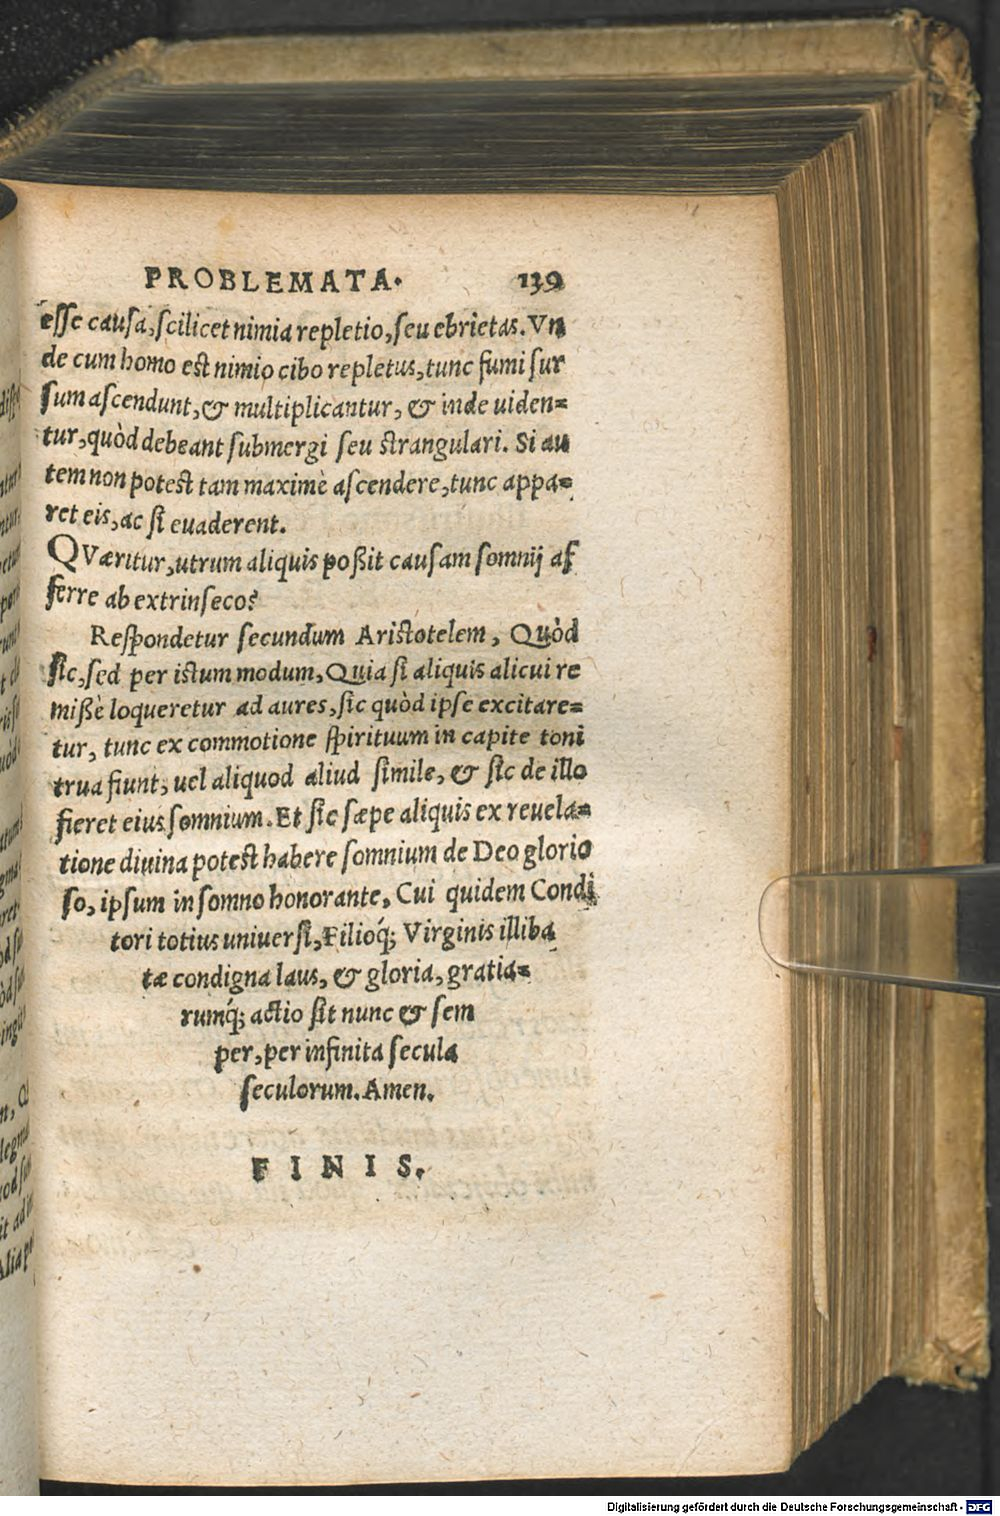 PROBLEMATA. 139
esse causa, scilicet nimia repletio, seu ebrietas. Vn
de cum homo est nimio cibo repletus, tunc fumi sur
sum ascendunt, & multiplicantur, & inde uiden=
tur, quòd debeant submergi seu strangulari. Si au
tem non potest tam maximè ascendere, tunc appa=
ret eis, ac si euaderent.
QVæritur, utrum aliquis poßit causam somnij af
ferre ab extrinseco?
Respondetur secundum Aristotelem, Quòd
sic, sed per istum modum, Quia si aliquis alicui re
mißè loqueretur ad aures, sic quòd ipse excitare=
tur, tunc ex commotione spirituum in capite toni
trua fiunt, uel aliquod aliud simile, & sic de illo
fieret eius somnium. Et sic sæpe aliquis ex reuela=
tione diuina potest habere somnium de Deo glorio
so, ipsum in somno honorante, Cui quidem Condi
tori totius uniuersi, Filioq́; Virginis illiba
tæ condigna laus, & gloria, gratia=
rumq́; actio sit nunc & sem
per, per infinita secula
seculorum. Amen.
FINIS.
Digitalisierung gefördert durch die Deutsche Forschungsgemeinschaft - DFG